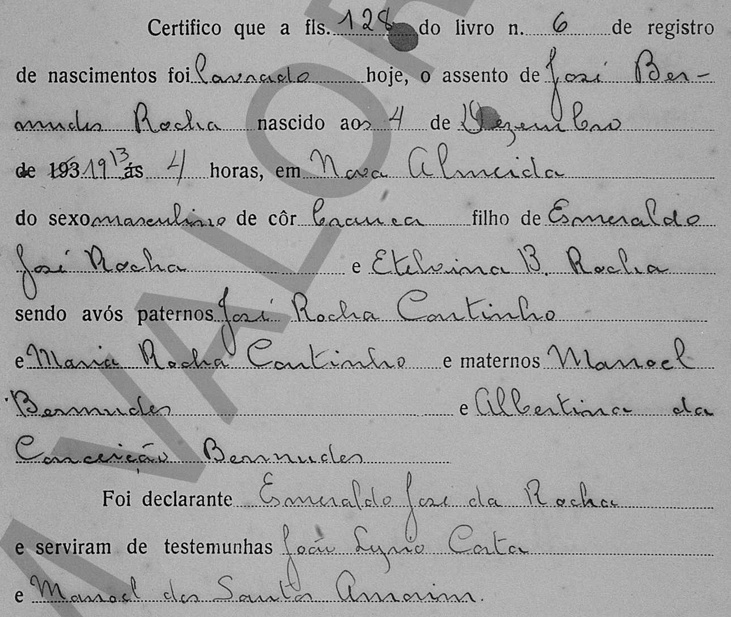 Certifico que a fls. 128 do livro n. 6 de registro
de nascimentos foi lavrado hoje, o assento de José Ber-
mudes Rocha nascido aos 4 de Dezembro
de 193 1913 ás 4 horas, em Nova Almeida
do sexo masculino de côr branca filho de Esmeraldo
José Rocha e Etelvina B. Rocha
sendo avós paternos José Rocha Coutinho
e Maria Rocha Coutinho e maternos Manoel
Bermudes e Albertina da
Conceição Bermudes
Foi declarante Esmeraldo José da Rocha
e serviram de testemunhas João Lyrio Costa
e Manoel dos Santos Amorim.
VALOR